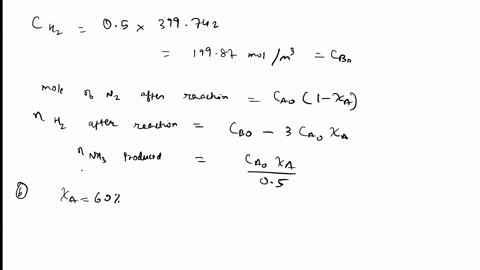 C_H₂ = 0.5 × 399.742
= 199.87 mol/m³ = C_B₀
mole of N₂ after reaction = C_A₀ (1 - x_A)
n_H₂ after reaction = C_B₀ - 3 C_A₀ x_A
n_NH₃ produced = C_A₀ x_A / 0.5
⑥ x_A = 60%